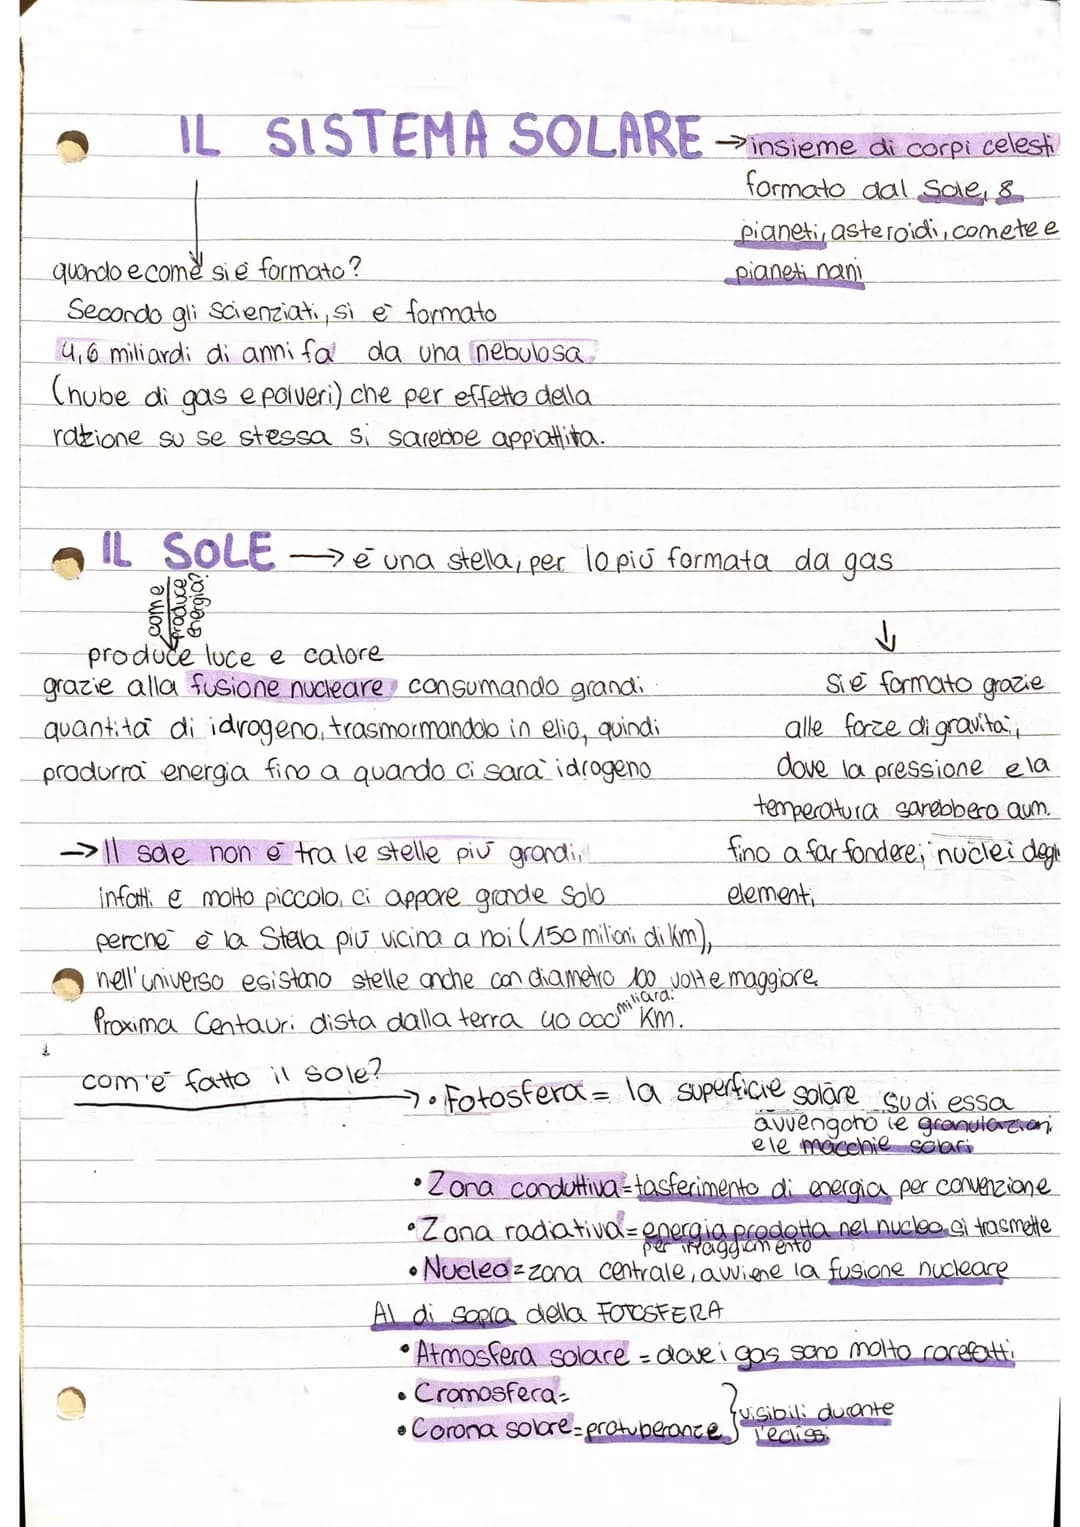 IL SISTEMA SOLARE → insieme di corpi celesti
formato dal Sole, 8
pianeti, asteroidi, comete e
pianeti nani
quando e come si è formato?
Secondo gli scienziati, si è formato
4,6 miliardi di anni fa da una nebulosa
(nube di gas e polveri) che per effetto della
razione su se stessa si sarebbe appiattita.
IL SOLE → è una stella, per lo più formata da gas
come
produce
energia?
produce luce e calore
grazie alla fusione nucleare consumando grandi
quantità di idrogeno, trasmormandolo in elio, quindi
produrrà energia fino a quando ci sarà idrogeno
↓
Si è formato grazie
alle forze di gravità,
dove la pressione e la
temperatura sarebbero aum.
fino a far fondere i nuclei degli
elementi
→ Il sole non è tra le stelle più grandi,
infatti è molto piccolo, ci appare grande solo
perchè è la Stella più vicina a noi (150 milioni di km),
nell'universo esistono stelle anche con diametro 100 volte maggiore.
Proxima Centauri dista dalla terra 40 000 miliardi Km.
com'è fatto il sole?
→ • Fotosfera = la superficie solare su di essa
avvengono le granulazioni
e le macchie solari
• Zona conduttiva = tasferimento di energia per convenzione
• Zona radiativa = energia prodotta nel nucleo si trasmette
per irraggiamento
• Nucleo = zona centrale, avviene la fusione nucleare
Al di sopra della FOTOSFERA
• Atmosfera solare = dove i gas sono molto rarefatti
• Cromosfera =
• Corona solare = protuberanze } visibili durante
l'eclissi